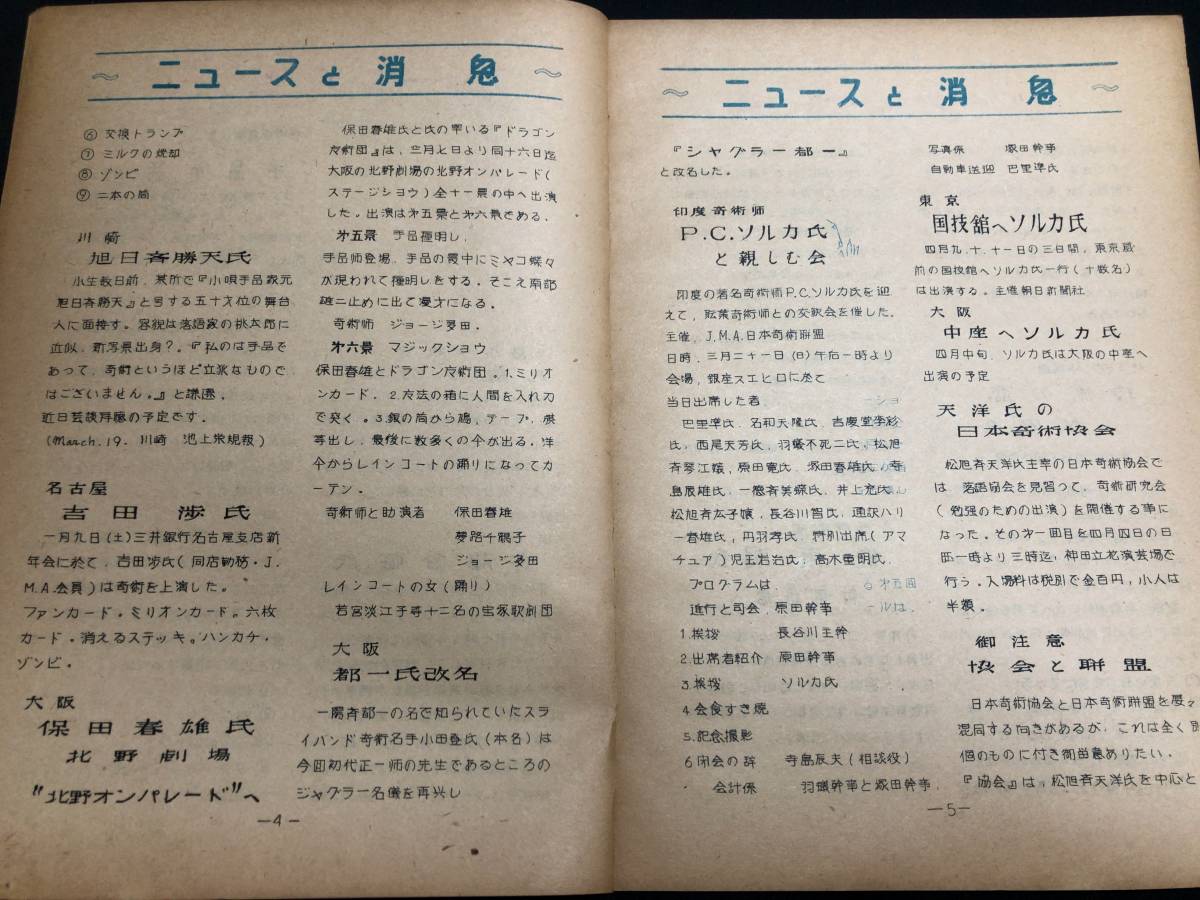 ニュースと消息
⑥ 交換トランプ
⑦ ミルクの焼却
⑧ ゾンビ
⑨ 二本の筒
川崎
旭日斉勝天氏
小生数日前、某所で『小唄手品家元
旭日斉勝天』と号する五十才位の舞台
人に面接す。容貌は落語家の桃太郎に
近似、新芳景出身？。『私のは手品で
あって、奇術というほど立派なもので
はございません。』と謙遜。
近日芸談拝聴の予定です。
(March.19. 川崎 池上栄規報)
名古屋
吉田 渉氏
一月九日(土)三井銀行名古屋支店新
年会に於て、吉田渉氏(同店勤務・J.
M.A.会員)は奇術を上演した。
ファンカード・ミリオンカード。六枚
カード・消えるステッキ。ハンカチ・
ゾンビ。
大阪
保田春雄氏
北野劇場
“北野オンパレード”へ
保田春雄氏と氏の率いる『ドラゴン
友術団』は、三月七日より同十六日迄
大阪の北野劇場の北野オンパレード(
ステージショウ)全十一景の中へ出演
した。出演は第五景と第六景である。
第五景 手品種明し、
手品師登場、手品の最中にミヤコ蝶々
が現われて種明しをする。そこえ南都
雄二止めに出て漫才になる。
奇術師 ジョージ多田.
第六景 マジックショウ
保田春雄とドラゴン友術団。1.ミリオ
ンカード. 2.友法の箱に人間を入れ刀
で突く。3.銀の筒から鳩、テープ・
等出し、最後に数多くの傘が出る。洋
傘からレインコートの踊りになってカ
ーテン。
奇術師と助演者 保田春雄
夢路千鶴子
ジョージ多田
レインコートの女(踊り)
若宮淡江子等十二名の宝塚歌劇団
大阪
都一氏改名
一陽斉都一の名で知られていたスラ
イハンド奇術名手小田登氏(本名)は
今回初代正一師の先生であるところの
ジャグラー名儀を再興し
—4—
ニュースと消息
『シャグラー都一』
と改名した。
印度奇術師
P.C.ソルカ氏
と親しむ会
印度の著名奇術師P.C.ソルカ氏を迎
えて、故葉奇術師との交歓会を催した。
主催、J.M.A.日本奇術聯盟
日時、三月二十一日(日)午后一時より
会場、銀座スエヒロに於て
当日出席した者
巴里準氏、名和天隆氏、吉慶堂李彩
氏、西尾天芳氏、羽蟻不死二氏、松旭
斉琴江嬢、原田寛氏、塚田春雄氏、寺
島辰雄氏、一感斉美蝶氏、井上充氏、
松旭斉太子嬢、長谷川智氏、通訳ハリ
一春雄氏、丹羽孝氏、特別出席(アマ
チュア)児玉岩治氏、高木重朗氏。
プログラムは、
進行と司会、原田幹事
1.挨拶 長谷川主幹
2.出席者紹介 原田幹事
3.挨拶 ソルカ氏
4.会食すき焼
5.記念撮影
6.閉会の辞 寺島辰夫(相談役)
会計係 羽蟻幹事と塚田幹事.
写真係 塚田幹事
自動車送迎 巴里準氏
東京
国技舘へソルカ氏
四月九、十、十一日の三日間、東京蔵
前の国技舘へソルカ氏一行(十数名)
は出演する。主催朝日新聞社
大阪
中座へソルカ氏
四月中旬、ソルカ氏は大阪の中座へ
出演の予定
天洋氏の
日本奇術協会
松旭斉天洋氏主宰の日本奇術協会で
は 落語協会を見習って、奇術研究会
(勉強のための出演)を開催する事に
なった。その第一回目を四月四日の日
曜一時より三時迄、神田立花演芸場で
行う。入場料は税別で金百円、小人は
半額。
御注意
協会と聯盟
日本奇術協会と日本奇術聯盟を屡々
混同する向きがあるが、これは全く別
個のものに付き御留意ありたい。
『協会』は、松旭斉天洋氏を中心と
—5—